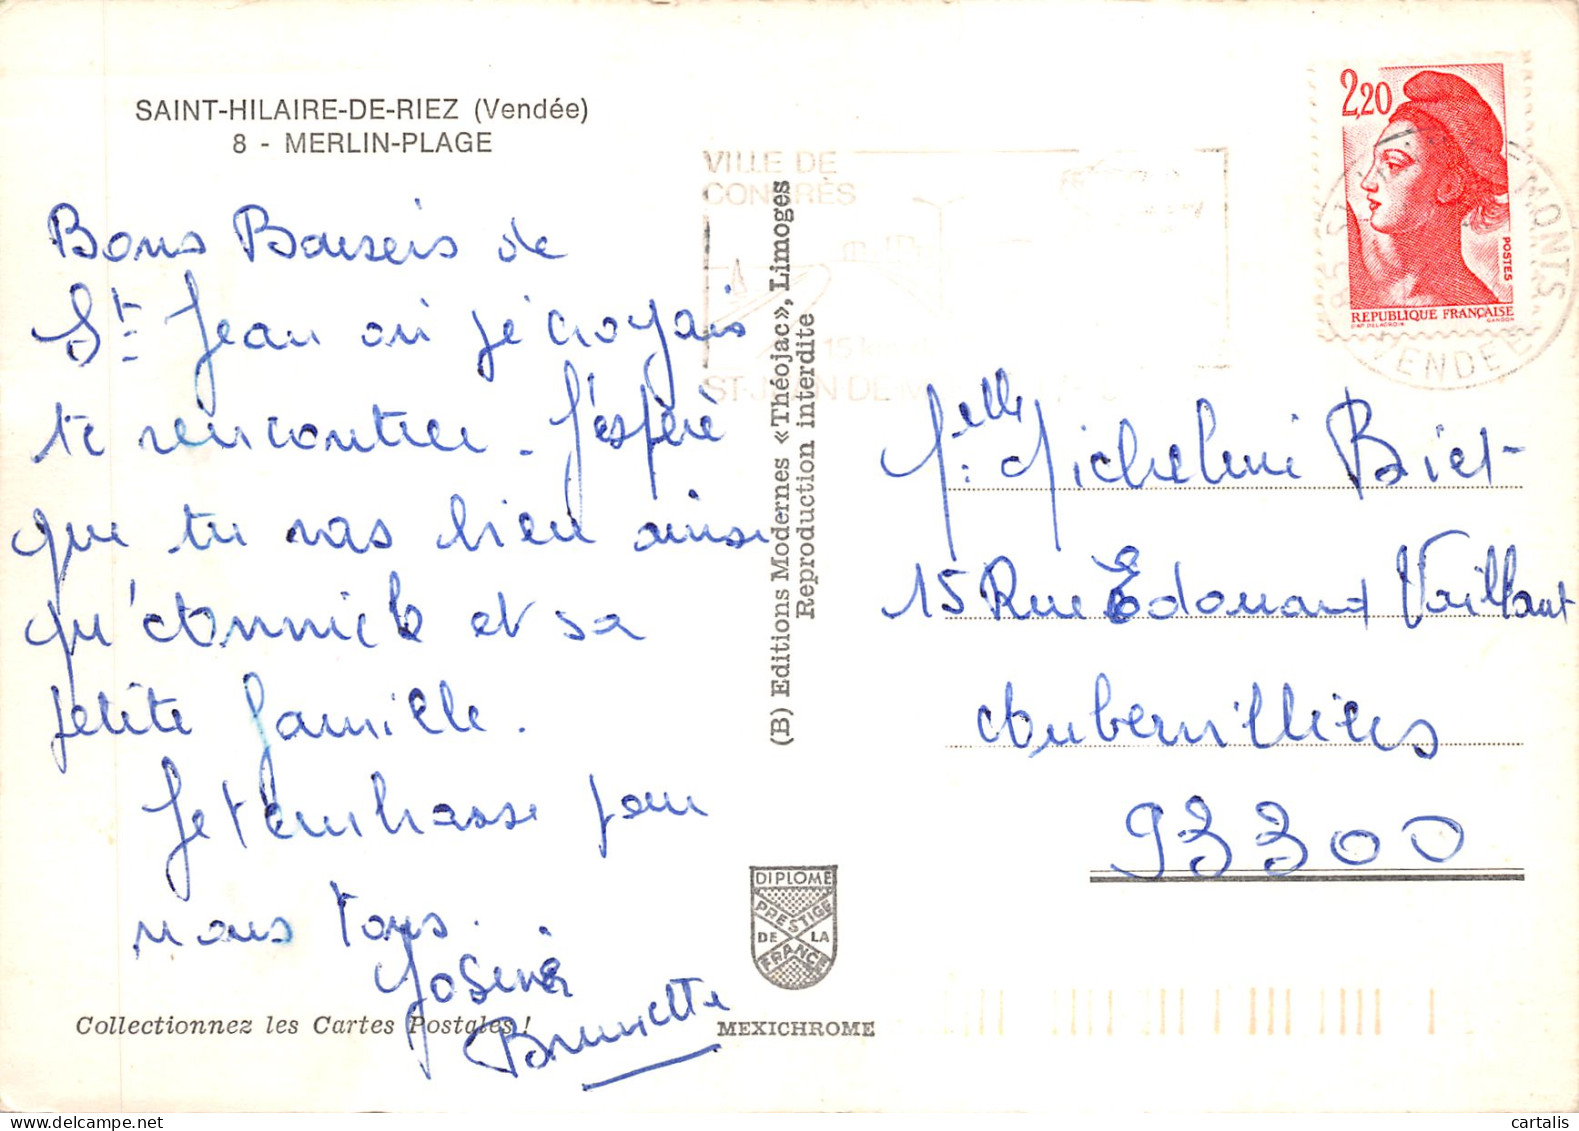 SAINT-HILAIRE-DE-RIEZ (Vendée)
8 - MERLIN-PLAGE
Bons Baiseis de
St Jean ou je croyais
te rencontrer. J'éspère
que tu vas bien ainsi
qu'Annick et sa
petite famille.
Je t'embrasse pour
nous tous.
Josiane
Brunette
Collectionnez les Cartes Postales !
(B) Editions Modernes «Théojac», Limoges
Reproduction interdite
DIPLOME
PRESTIGE
DE LA
FRANCE
MEXICHROME
VILLE DE
CONGRÈS
15 km
ST-JEAN DE MONTS
2,20
POSTES
REPUBLIQUE FRANÇAISE
D'AP. DELACROIX GANDON
85 ST MONTS
VENDEE
Melle Micheline Biet
15 Rue Edouard Vaillant
Aubervilliers
93300
cartalis